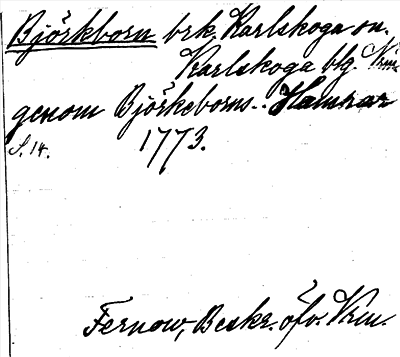 Björkborn brk. Karlskoga sn.
Karlskoga blg. Vrm.
genom Björkeborns.. Hamrar
S. 14. 1773.
Fernow, Beskr. öfv. Vrm.